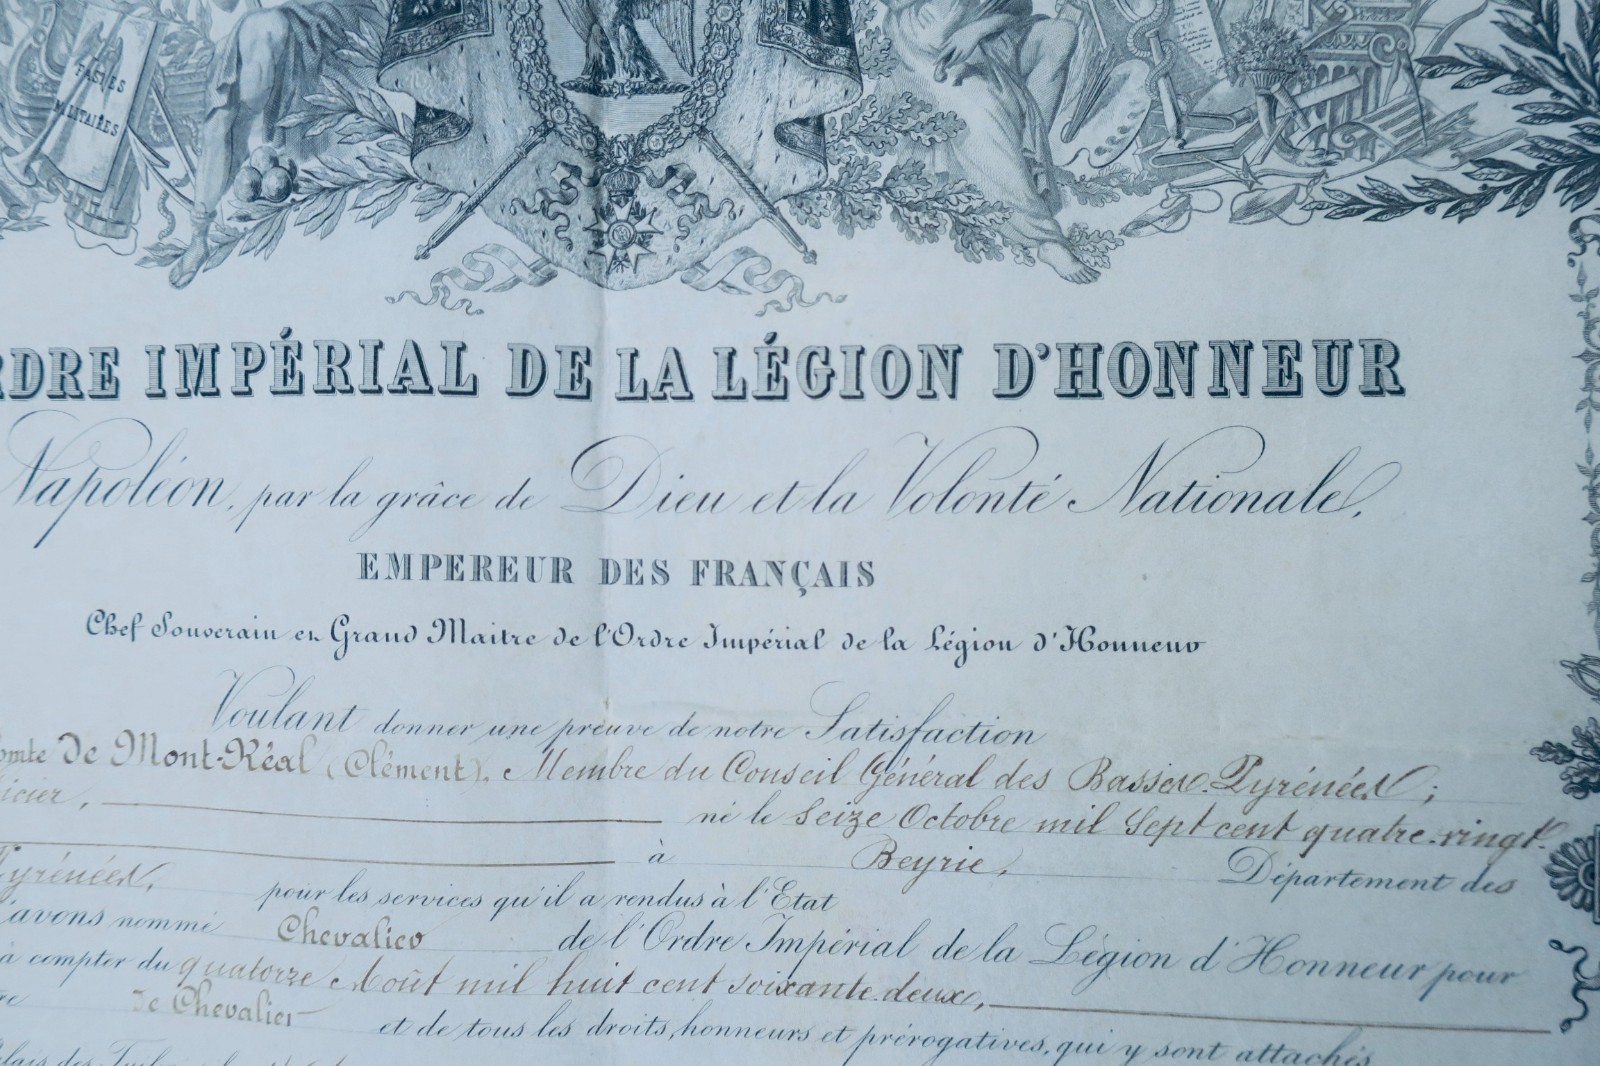 FASTES
MILITAIRES
N
ORDRE IMPÉRIAL DE LA LÉGION D'HONNEUR
Napoléon, par la grâce de Dieu et la Volonté Nationale,
EMPEREUR DES FRANÇAIS
Chef Souverain et Grand Maitre de l'Ordre Impérial de la Légion d'Honneur
Voulant donner une preuve de notre Satisfaction
omte de Mont-Réal (Clément), Membre du Conseil Général des Basses-Pyrénées;
icier, né le seize Octobre mil sept cent quatre-vingt-
à Beyrie, Département des
Pyrénées, pour les services qu'il a rendus à l'Etat
avons nommé Chevalier de l'Ordre Impérial de la Légion d'Honneur pour
à compter du quatorze Août mil huit cent soixante-deux,
de Chevalier et de tous les droits, honneurs et prérogatives, qui y sont attachés